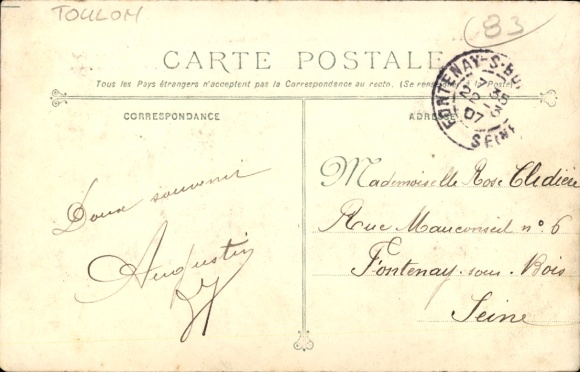 TOULON
83
CARTE POSTALE
Tous les Pays étrangers n'acceptent pas la Correspondance au recto. (Se rens à la Poste)
CORRESPONDANCE
ADRESSE
FONTENAY-S-BOIS
7 35
22 - 3
07
SEINE
Doux souvenir
Augustin
Mademoiselle Rose Clidière
Rue Mauconseil n° 6
Fontenay-sous-Bois
Seine